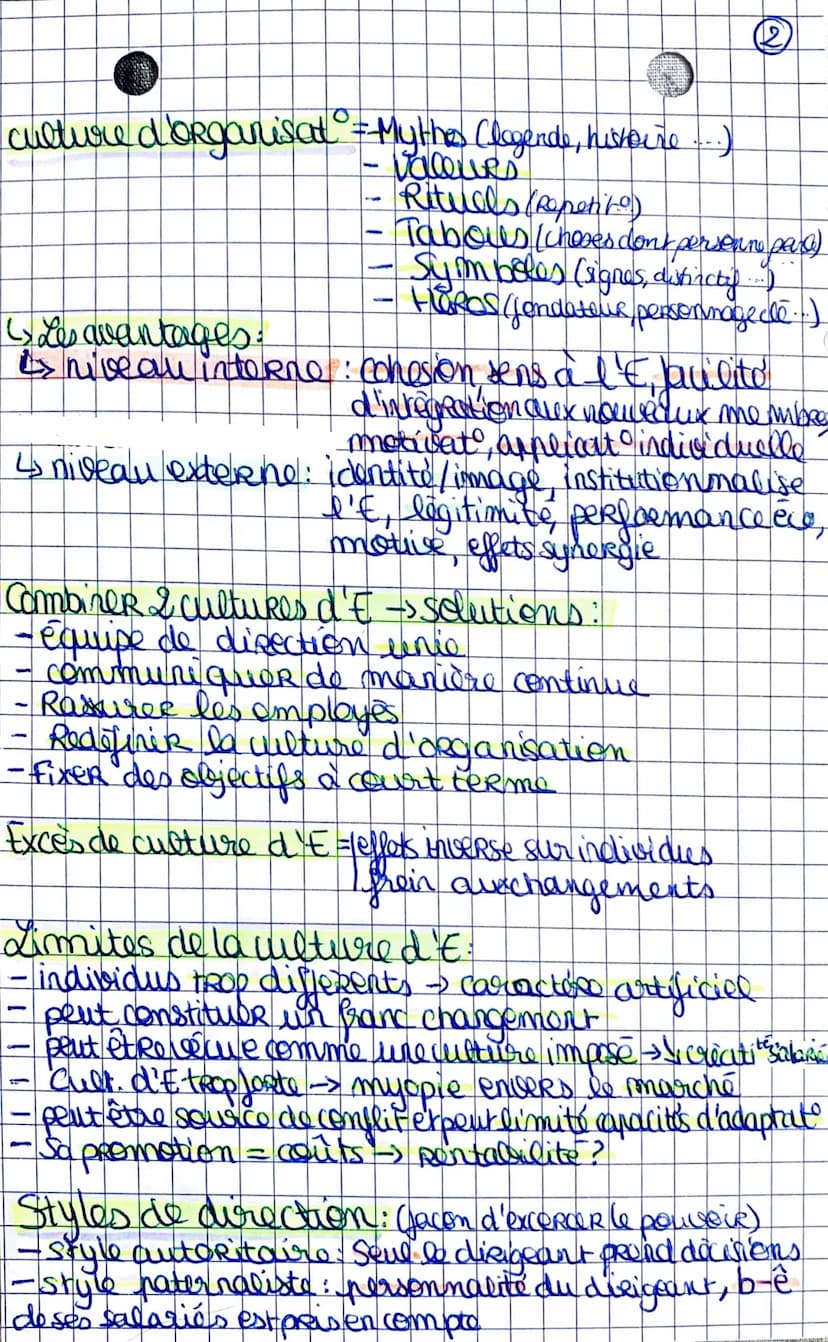 ②
culture d'ORganisat° = - Mythes (légende, histoire ...)
- Valeurs
- Rituels (Répétit°)
- Tabous (choses dont personne parle)
- Symboles (signes, distinctif ...)
- Héros (fondateur, personnage clé ...)
↳ Les avantages :
↳ niveau interne : cohésion, sens à l'E, facilité
d'intégration aux nouveaux membres
motivat°, appréciat° individuelle
↳ niveau externe : identité/image, institutionnalise
l'E, légitimité, performance éco,
motive, effets synergie
Combiner 2 cultures d'E → solutions :
- équipe de direction unie
- communiquer de manière continue
- Rassurer les employés
- Redéfinir la culture d'organisation
- fixer des objectifs à court terme
Excès de culture d'E = effets inverse sur individus
frein aux changements
Limites de la culture d'E :
- individus trop différents → caractère artificiel
- peut constituer un franc changement
- peut être vécue comme une culture imposé → ↘ créati^té salarié
- Cult. d'E trop forte → myopie envers le marché
- peut être source de conflit et peut limité capacités d'adaptat°
- Sa promotion = coûts → rentabilité ?
Styles de direction : (façon d'excercer le pouvoir)
- style autoritaire : Seul le dirigeant prend décisions
- style paternaliste : personnalité du dirigeant, b-ê
de ses salariés est pris en compte